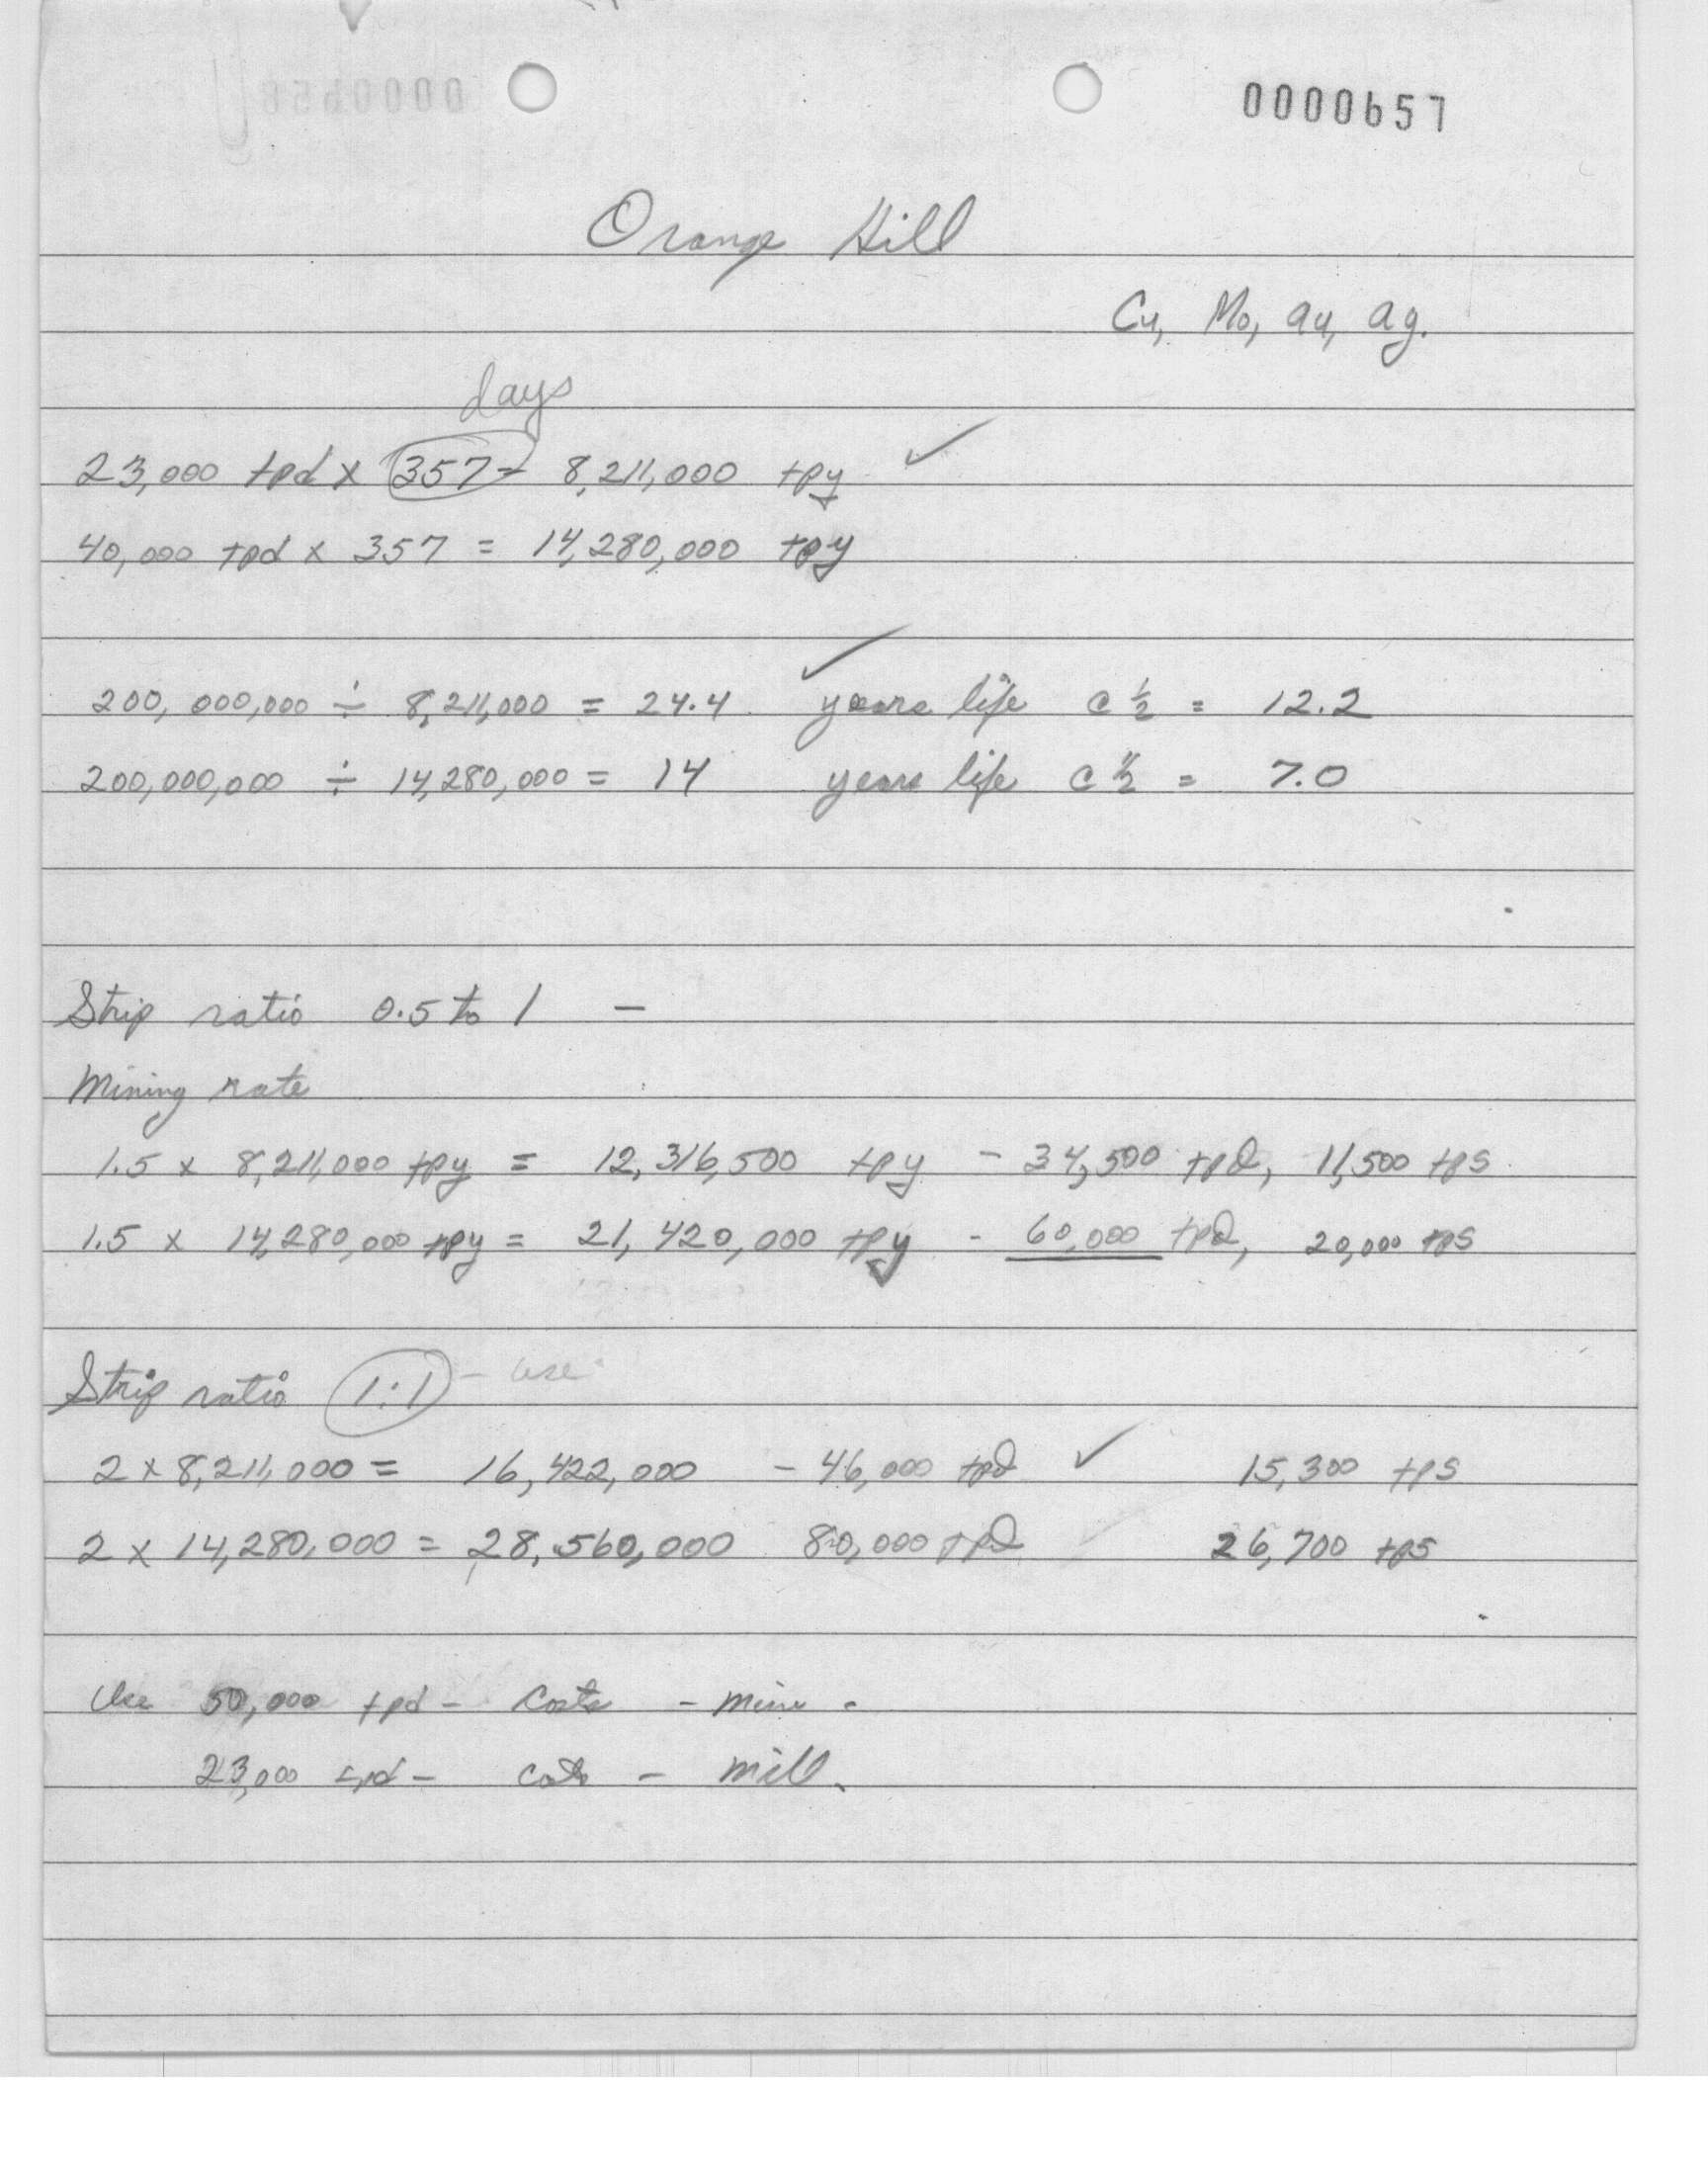 0000657
Orange Hill
Cu, Mo, au, ag.
days
23,000 tpd x 357 = 8,211,000 tpy ✓
40,000 tpd x 357 = 14,280,000 tpy
200,000,000 ÷ 8,211,000 = 24.4 years life c ½ = 12.2
200,000,000 ÷ 14,280,000 = 14 years life c ½ = 7.0
Strip ratio 0.5 to 1 —
Mining rate
1.5 x 8,211,000 tpy = 12,316,500 tpy - 34,500 tpd, 11,500 tps
1.5 x 14,280,000 tpy = 21,420,000 tpy - 60,000 tpd, 20,000 tps
Strip ratio 1:1 - use
2 x 8,211,000 = 16,422,000 - 46,000 tpd ✓ 15,300 tps
2 x 14,280,000 = 28,560,000 80,000 tpd 26,700 tps
Use 50,000 tpd - Costs - mine -
23,000 tpd - costs - mill.